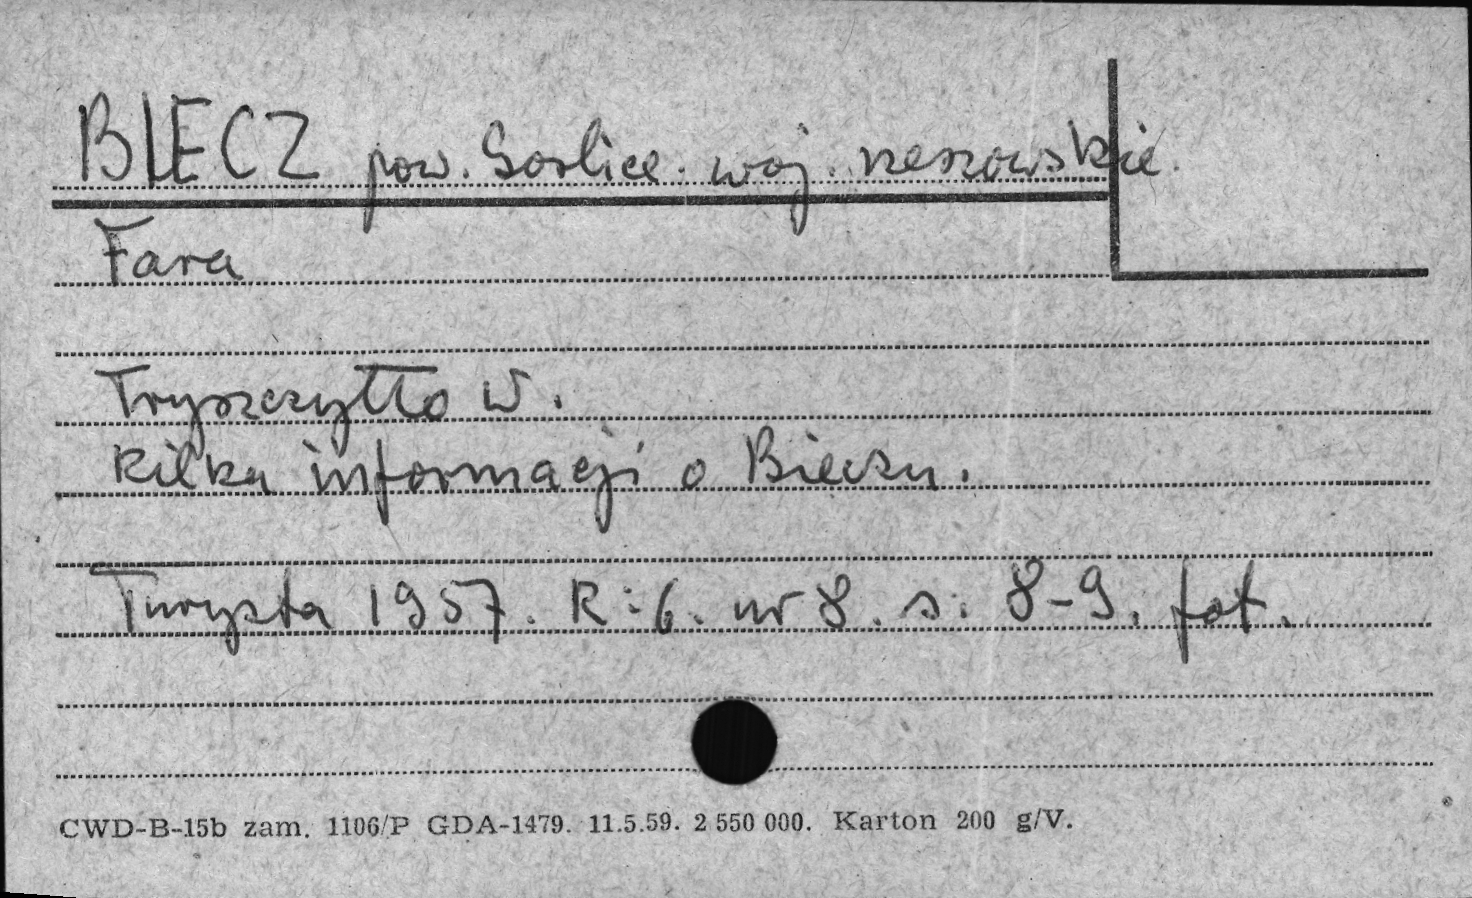 BIECZ pow. Gorlice. woj. rzeszowskie.
Fara
Tryszczyłło W.
Kilka informacji o Bieczu.
Turysta 1957. R:6. nr 8. s: 8-9. fot.
CWD-B-15b zam. 1106/P GDA-1479. 11.5.59. 2 550 000. Karton 200 g/V.